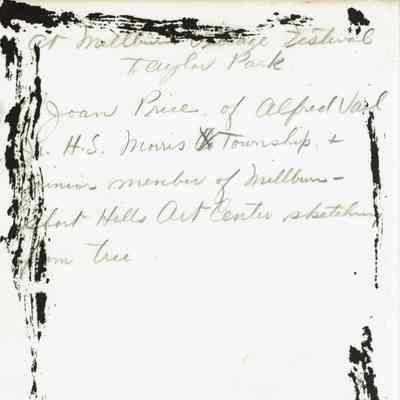 at Millburn Village Festival
Taylor Park
Joan Price, of Alfred Vail
H.S. Morris Township, +
Junior member of Millburn-
Short Hills Art Center sketching
from tree